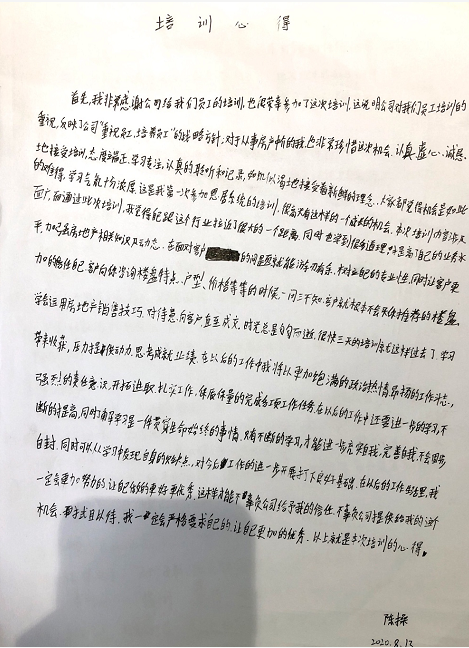 培训心得
首先,我非常感谢公司给我们员工的培训,也很荣幸参加了这次培训,这说明公司对我们员工培训的
重视,反映了公司“重视员工,培养员工”的战略方针;对于从事房产中的我,也非常珍惜这次机会。认真、虚心、诚恳
地接受培训,态度端正、学习专注,认真的聆听和记录,如饥似渴地接受着新鲜的理念。大家都觉得机会是如此
的难得,学习气氛十分浓厚,这是我第一次参加思居系统的培训,很高兴有这样的一个成长的机会,本次培训内容涉及
面广,而通过此次培训,我觉得和跟这个行业拉近了很大的一个距离,同时也学到很有道理,提高自己的业务水
平,力吃透房地产相关知识及动态,在面对客户的问题就能游刃有余,相对自己的专业性,同时让客户更
加的信任自己,客户向你咨询楼盘特点、户型、价格等等的时候,一问三不知,客户就根本不会买你推荐的楼盘
学会运用房地产销售技巧,对待意向客户直至成交,时光总是匆匆而逝,很快三天的培训就这样过去了,学习
带来收获,压力催使动力,思考成就业绩,在以后的工作中我将以更加饱满的政治热情,昂扬的工作斗志,
强烈的责任意识,开拓进取,扎实工作,保质保量的完成各项工作任务,在以后的工作中还要进一步的学习,不
断的提高,同时,学习是一件贯穿生命始终的事情,只有不断的学习,才能进一步充实自我,完善自我,不会固步
自封,同时可以从学习中发现自身的缺点,对今后工作的进一步开展打下良好基础,在以后的工作生活里,我
一定会更加努力的,让自己做的更好更优秀,这样才能不辜负公司给予我的信任,不辜负公司提供给我的这个
机会,拭目以待,我一定会严格要求自己的,让自己更加的优秀、以上就是本次培训的心得。
陈操
2020.8.13